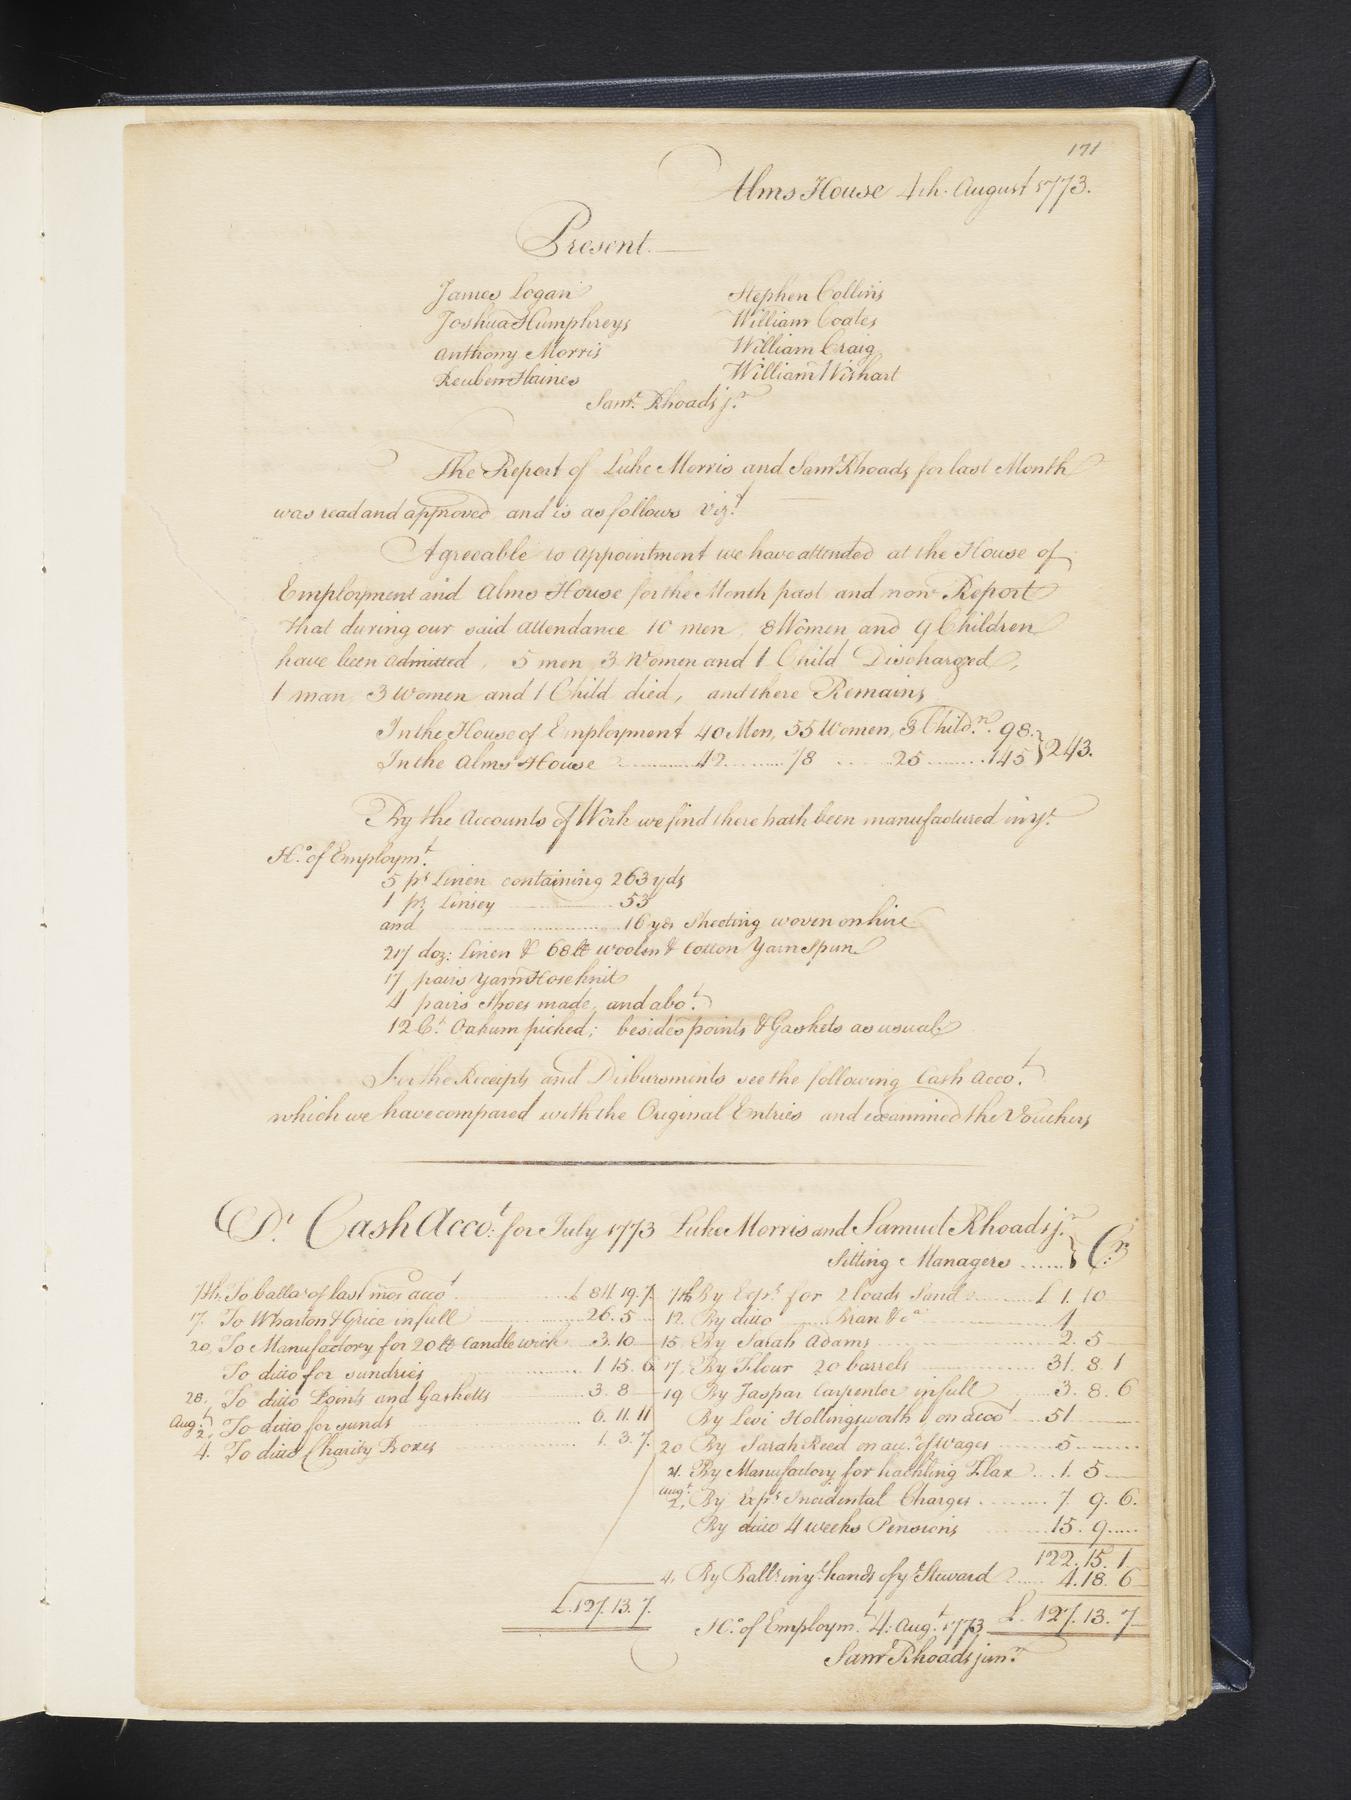 171
Alms House 4th. August 1773.
Present.
James Logan
Joshua Humphreys
Anthony Morris
Reuben Haines
Stephen Collins
William Coates
William Craig
William Wishart
Saml. Rhoads jr.
The Report of Luke Morris and Saml Rhoads for last Month
was read and approved and is as follows vizt
Agreeable to appointment we have attended at the House of
Employment and Alms House for the Month past and now Report
that during our said attendance 10 men, 8 Women and 9 Children
have been admitted, 5 men, 3 Women and 1 Child Discharged,
1 man, 3 Women and 1 Child died, and there Remains
In the House of Employment 40 Men, 55 Women, 3 Childn. 98.
In the Alms House 42 78 25 145 } 243.
By the Accounts of Work we find there hath been manufactured in yt.
Ho. of Employmt.
5 ps Linen containing 263 yds
1 pz Linsey 53
and 16 yds Sheeting woven on hire
217 doz: Linen & 68 lb woolen & Cotton Yarn Spun
17 pairs yarn Hose knit
4 pairs Shoes made, and abot.
12 Ct. Oakum picked; besides points & Gaskets as usual
For the Receipts and Disbursments see the following Cash Accot.
which we have compared with the Original Entries and examined the Vouchers
Dr. Cash Accot. for July 1773 Luke Morris and Samuel Rhoads jr.
Sitting Managers } Cr.
7th. To balla. of last mos. accot £ 84 19. 7
17. To Wharton & Grice in full 26. 5
20, To Manufactory for 20 lb Candlewick 3. 10
To ditto for sundries 1 15. 6
28, To ditto Points and Gasketts 3. 8
Augt. 2, To ditto for sunds 6. 11. 11
4. To ditto Charity Boxes 1. 3. 7.
£. 127. 13. 7.
7th By Exps. for 2 loads Sand £ 1. 10
12. By ditto Bran &ca 4
15. By Sarah Adams 2. 5
17. By Flour 20 barrels 31. 8. 1
19 By Jaspar Carpenter in full 3. 8. 6
By Levi Hollingsworth on accot 51
20 By Sarah Reed on acc. of Wages 5
21. By Manufactory for hackling Flax 1. 5
Augt. 2, By Exps Incidental Charges 7. 9. 6.
By ditto 4 weeks Pensions 15. 9
122. 15. 1
4, By Balle. in ye. hands of ye Steward 4. 18. 6
£. 127. 13. 7
Ho. of Employmt. 4: Augt. 1773
Saml Rhoads junr.